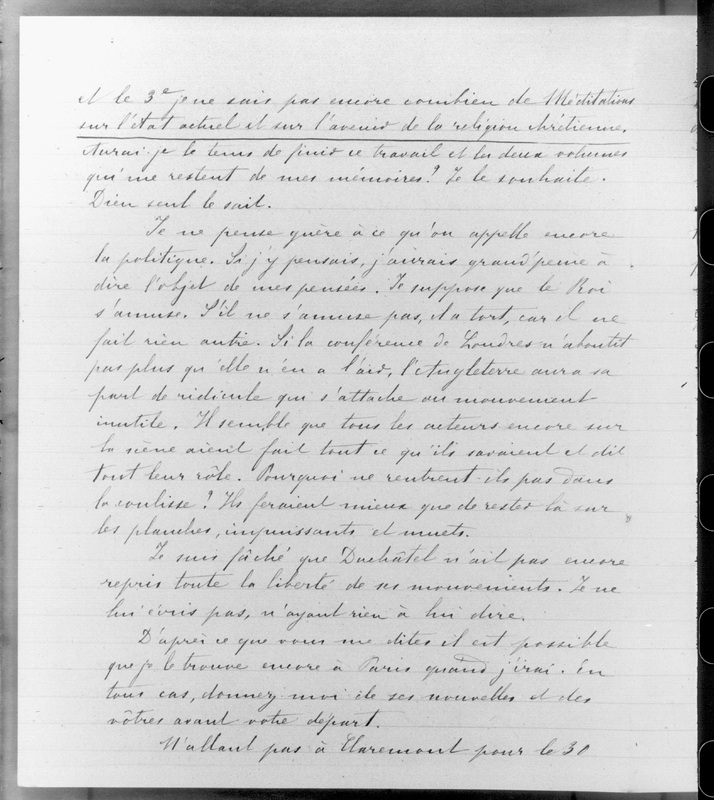 et le 3e je ne sais pas encore combien de Méditations
sur l'état actuel et sur l'avenir de la religion chrétienne.
Aurai-je le tems de finir ce travail et les deux volumes
qui me restent de mes mémoires? Je le souhaite.
Dieu seul le sait.
Je ne pense guère à ce qu'on appelle encore
la politique. Si j'y pensais, j'aurais grand'peine à
dire l'objet de mes pensées. Je suppose que le Roi
s'amuse. S'il ne s'amuse pas, il a tort, car il ne
fait rien autre. Si la conférence de Londres n'aboutit
pas plus qu'elle n'en a l'air, l'Angleterre aura sa
part de ridicule qui s'attache au mouvement
inutile. Il semble que tous les acteurs encore sur
la scène aient fait tout ce qu'ils savaient et dit
tout leur rôle. Pourquoi ne rentrent-ils pas dans
la coulisse? Ils feraient mieux que de rester là sur
les planches, impuissants et muets.
Je suis fâché que Duchâtel n'ait pas encore
repris toute la liberté de ses mouvements. Je ne
lui écris pas, n'ayant rien à lui dire.
D'après ce que vous me dites il est possible
que je le trouve encore à Paris quand j'irai. En
tous cas, donnez moi de ses nouvelles et des
vôtres avant votre départ.
N'allant pas à Claremont pour le 30